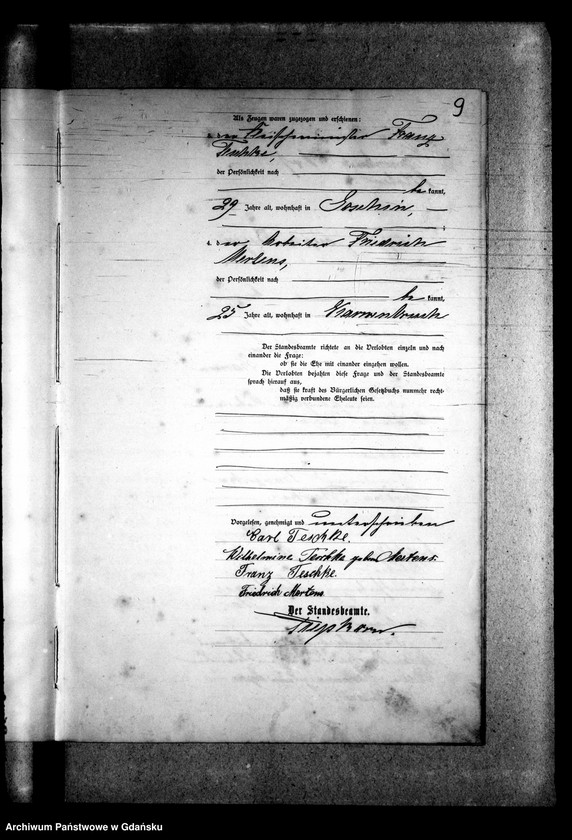 9
Als Zeugen waren zugezogen und erschienen:
der Fleischermeister Franz
Teschke,
der Persönlichkeit nach
be kannt,
29 Jahre alt, wohnhaft in
der Arbeiter Friedrich
Mertens,
der Persönlichkeit nach
be kannt,
25 Jahre alt, wohnhaft in
Der Standesbeamte richtete an die Verlobten einzeln und nach
einander die Frage:
ob sie die Ehe mit einander eingehen wollen.
Die Verlobten bejahten diese Frage und der Standesbeamte
sprach hierauf aus,
daß sie kraft des Bürgerlichen Gesetzbuchs nunmehr recht-
mäßig verbundene Eheleute seien.
Vorgelesen, genehmigt und unterschrieben
Carl Teschke.
Wilhelmine Teschke geben Mertens.
Franz Teschke.
Friedrich Mertens
Der Standesbeamte.
Archiwum Państwowe w Gdańsku